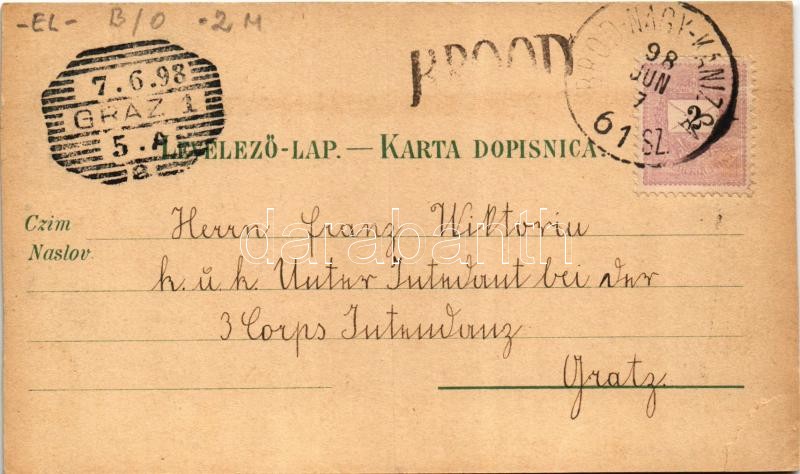 -EL- B/O -2M
7.6.98
GRAZ 1
5.A
2
BROOD
BROD-NAGY-KANIZSA
98
JUN
7
61 SZ.
2
LEVELEZŐ-LAP. — KARTA DOPISNICA.
Czim
Naslov
Herrn Franz Wiktorin
k. u. k. Unter Intendant bei der
3 Corps Intendanz
Gratz.
darabanth